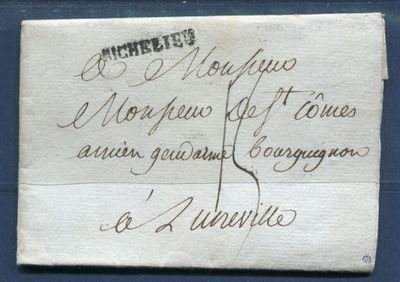 RICHELIEU
a Monsieur
Monsieur de St cômes
ancien gendarme bourguignon
15
à Luneville